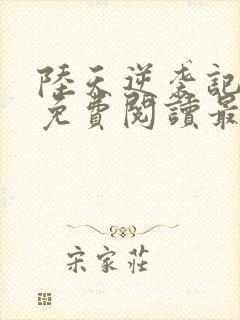 陸天逆袭記
免費閱讀最
宋家莊